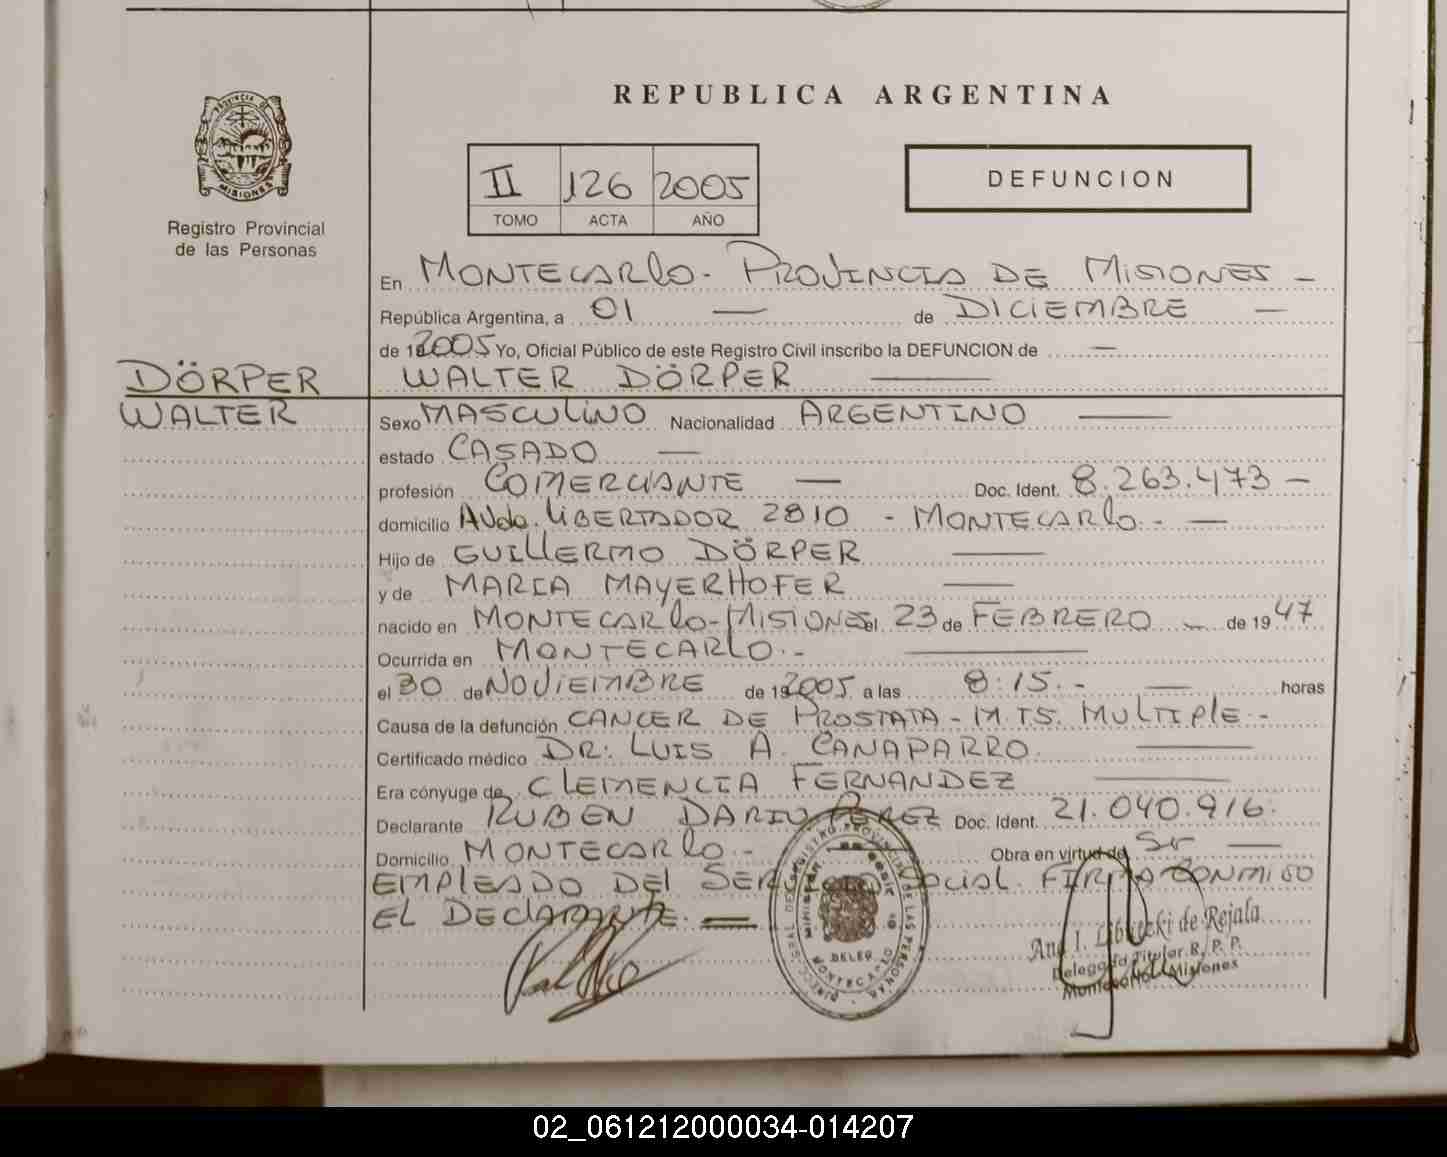 REPUBLICA ARGENTINA
PROVINCIA DE
MISIONES
Registro Provincial
de las Personas
II 126 2005
TOMO ACTA AÑO
DEFUNCION
En MONTECARLO - PROVINCIA DE MISIONES -
República Argentina, a 01 — de DICIEMBRE —
de 2005 Yo, Oficial Público de este Registro Civil inscribo la DEFUNCION de —
DÖRPER
WALTER
WALTER DÖRPER —
Sexo MASCULINO Nacionalidad ARGENTINO —
estado CASADO —
profesión COMERCIANTE — Doc. Ident. 8.263.473 -
domicilio AVda. LIBERTADOR 2810 - MONTECARLO - —
Hijo de GUILLERMO DÖRPER —
y de MARIA MAYERHOFER —
nacido en MONTECARLO - MISIONES el 23 de FEBRERO - de 1947
Ocurrida en MONTECARLO.- —
el 30 de NOVIEMBRE de 2005 a las 8:15.- — horas
Causa de la defunción CANCER DE PROSTATA - M.TS. MULTIPLE -
Certificado médico DR: LUIS A. CANAPARRO —
Era cónyuge de CLEMENCIA FERNANDEZ —
Declarante RUBEN DARIO PEREZ Doc. Ident. 21.040.916.
Domicilio MONTECARLO - Obra en virtud de Sr —
EMPLEADO DEL SOCIAL. FIRMA CONMIGO
EL DECLARANTE. —
DELEG
MONTECARLO
de Rejala
Titular R. P. P.
Misiones
02_061212000034-014207